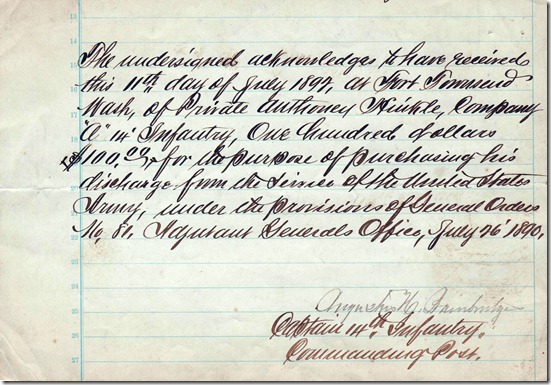 The undersigned acknowledges to have received
this 11th day of July 1894, at Fort Townsend
Wash, of Private Anthoney Hinkle, Company
"A" 14" Infantry, One hundred dollars
$100,00, for the purpose of purchasing his
discharge from the Service of the United States
Army, under the provisions of General Orders
No. 81. Adjutant Generals Office, July 26" 1890.
Augustus H. Bainbridge
Captain 14th Infantry.
Commanding Post.
13
15
16
17
18
20
21
22
23
25
26
27